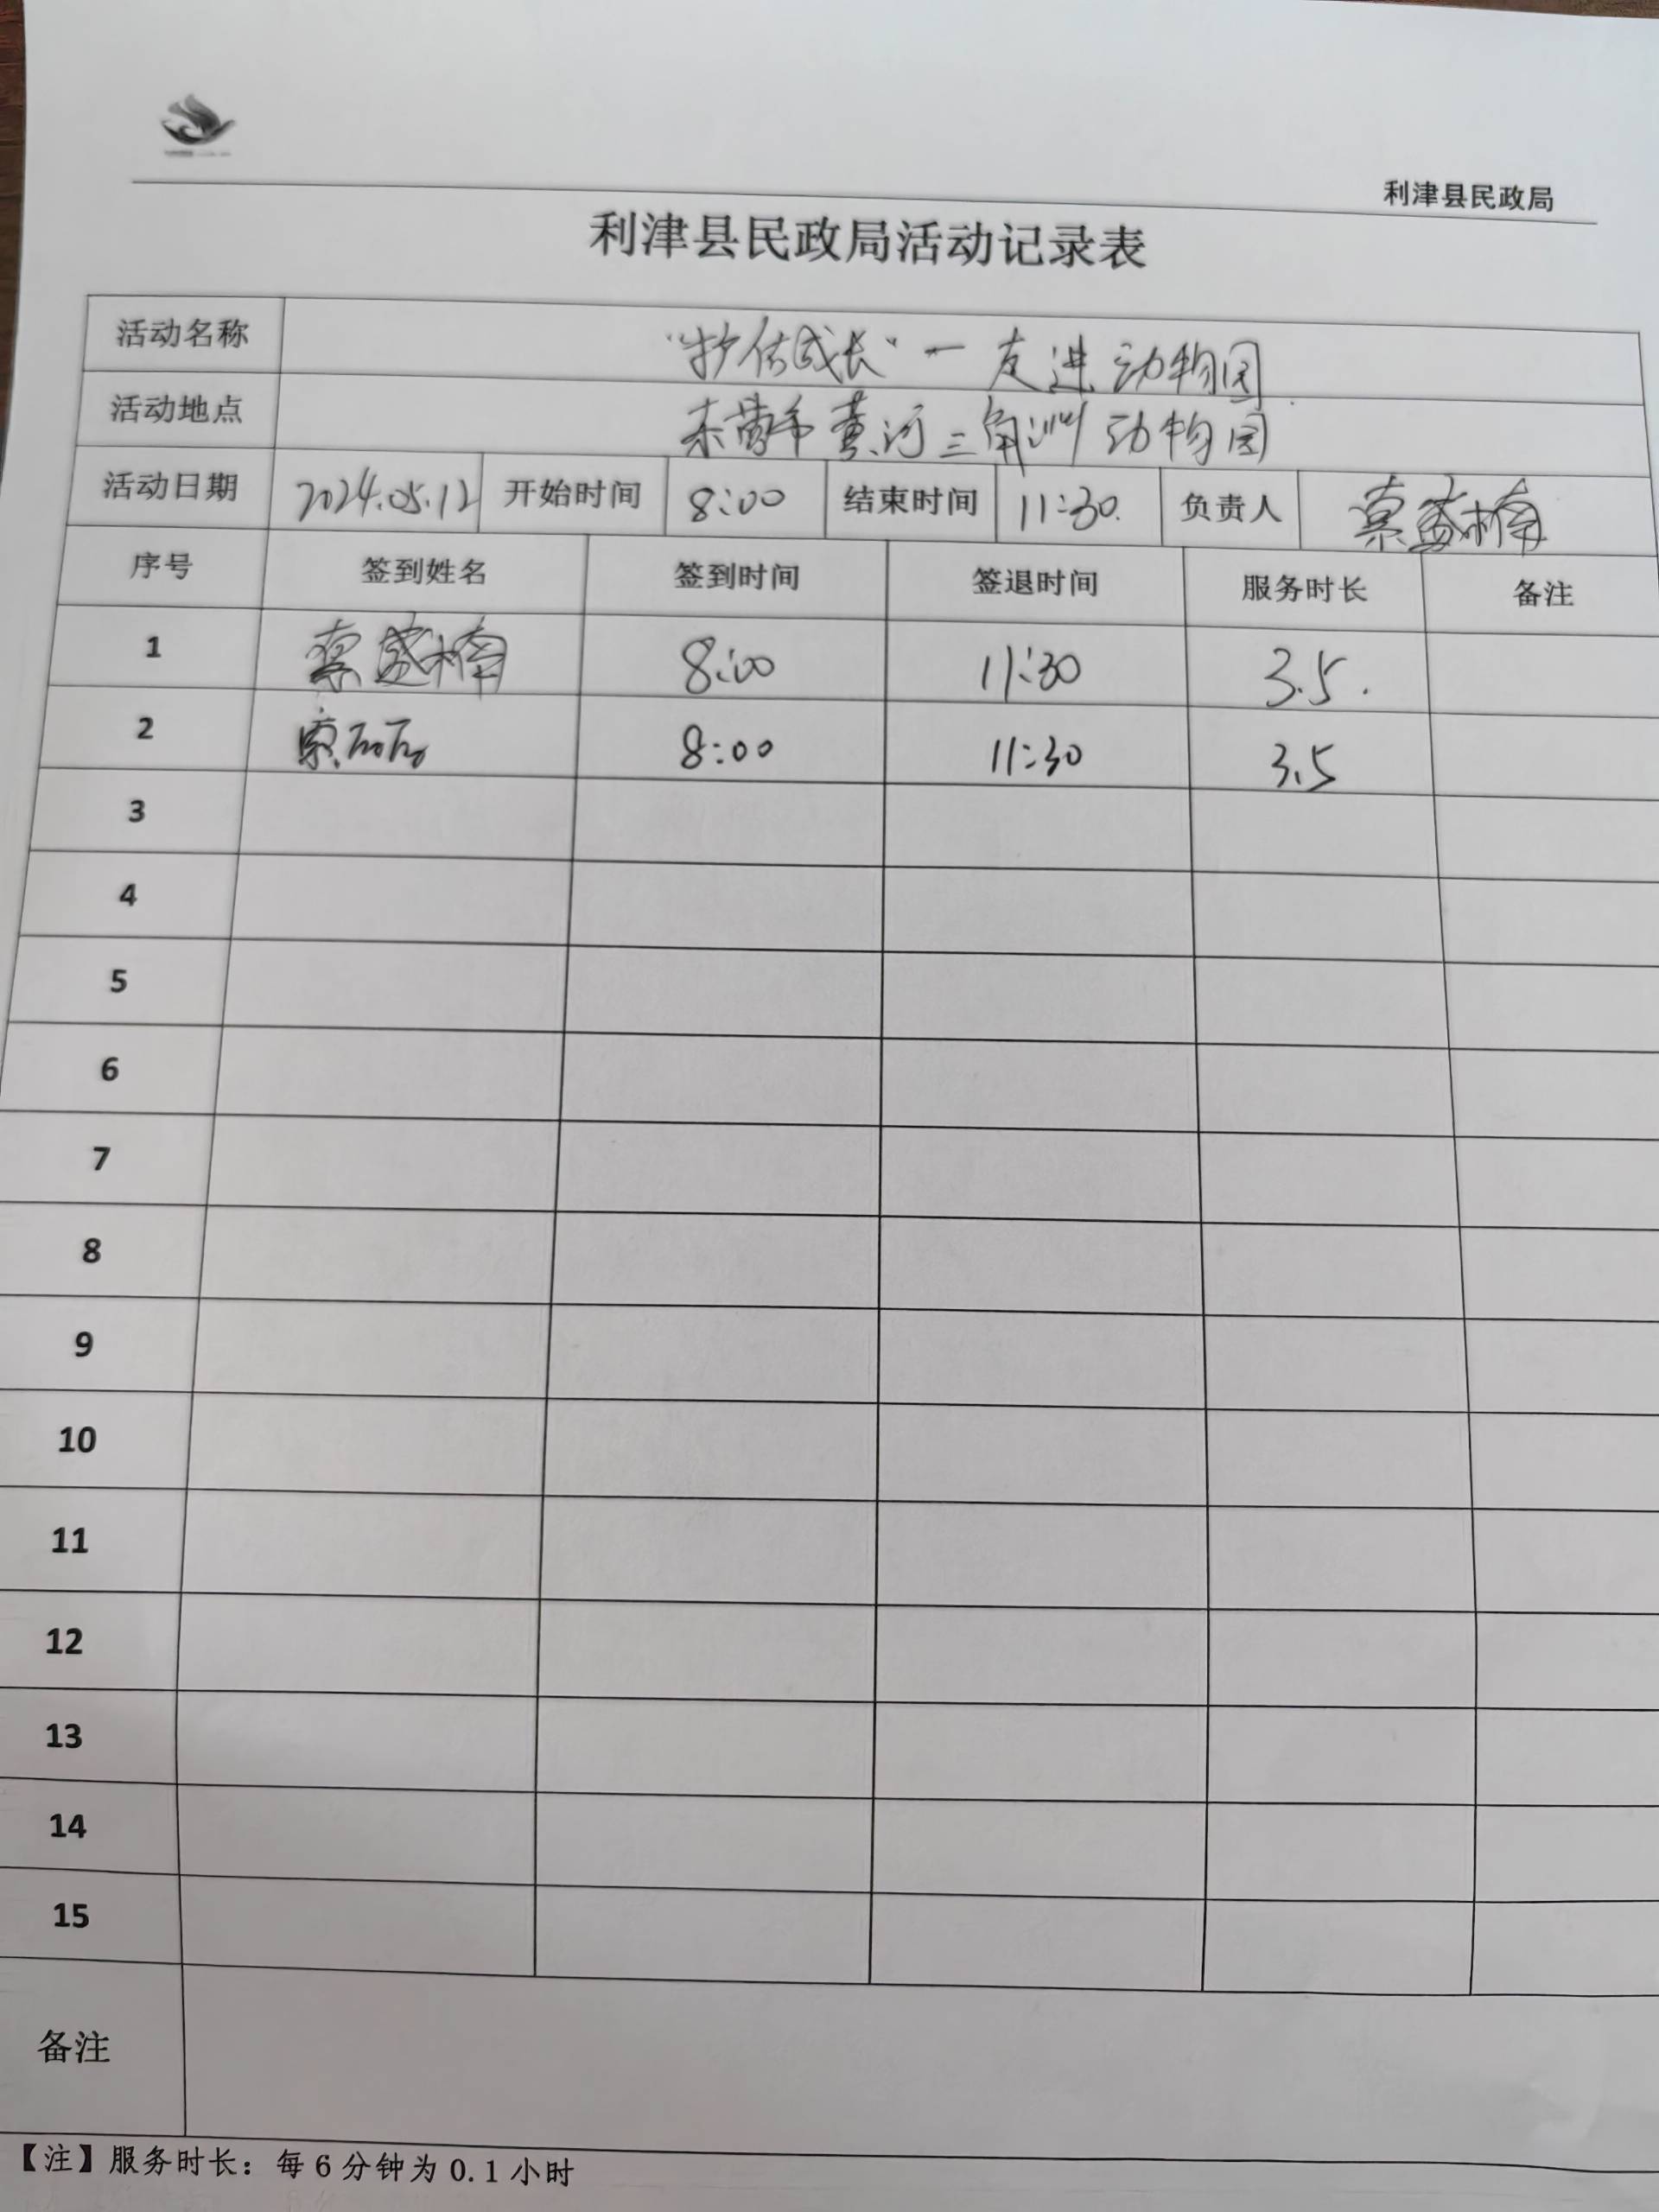 利津县民政局
利津县民政局活动记录表
活动名称 "护佑成长"一走进动物园
活动地点 东营市黄河三角洲动物园
活动日期 2024.05.12 开始时间 8:00 结束时间 11:30 负责人 索盛楠
序号 签到姓名 签到时间 签退时间 服务时长 备注
1 索盛楠 8:00 11:30 3.5
2 8:00 11:30 3.5
3
4
5
6
7
8
9
10
11
12
13
14
15
备注
【注】服务时长：每6分钟为0.1小时